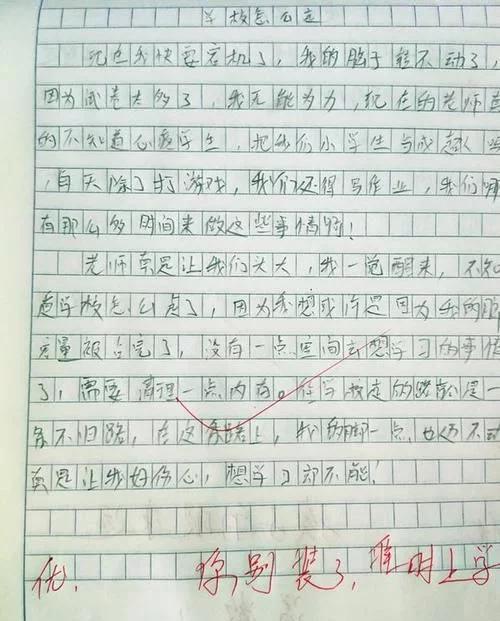 学校怎么走
现在我快要宕机了，我的脑子转不动了，
因为试卷太多了，我无能为力，现在的老师真
的不知道心疼学生，把我们小学生当成超人
，每天除了打游戏，我们还得写作业，我们哪
有那么多时间来做这些事情啊！
老师真是让我们头大，我一觉醒来，不知
道学校怎么走了，因为我想或许是因为我的脑
容量被占完了，没有一点空间去想学习的事情
了，需要清理一点内存。在学校走的路就是一
条不归路，在这条路上，我的脚一点也迈不动
真是让我好伤心，想学习却不能！
优. 你别装了，明上学